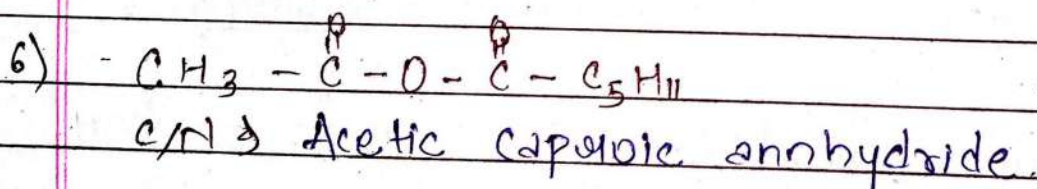 O O
6) - CH3 - C - O - C - C5H11
C/N → Acetic caproic annhydride.